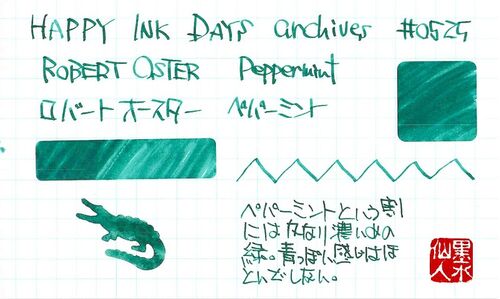 HAPPY INK DAYS archives #0525
ROBERT OSTER Peppermint
ロバートオースター ペパーミント
ペパーミントという割
にはかなり濃いめの
緑。青っぽい感じはほ
とんどしない。
墨水
仙人